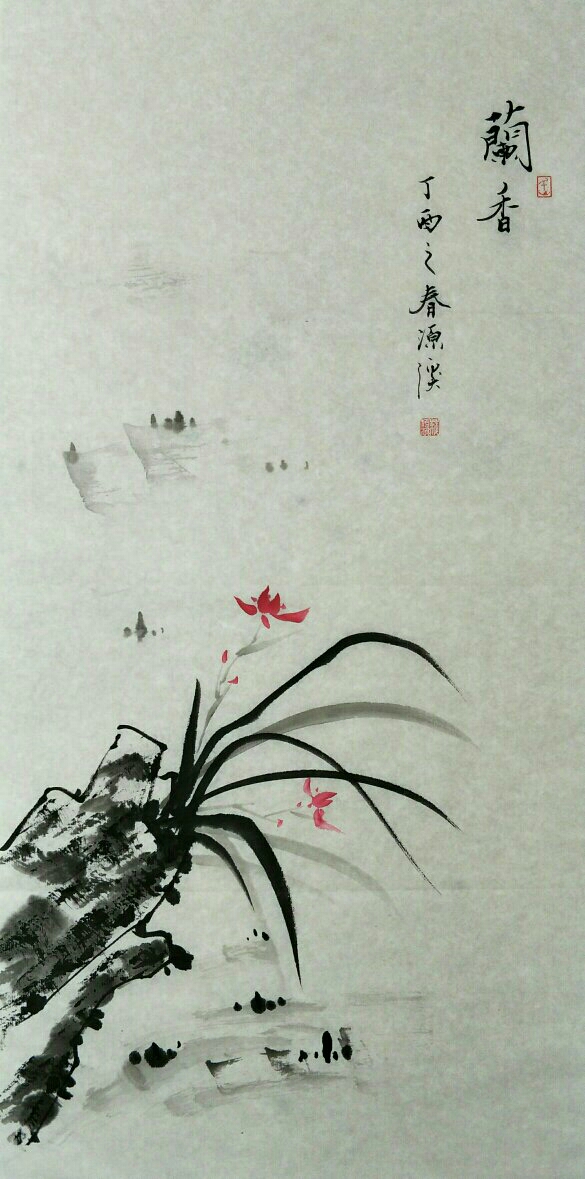 蘭香
丁酉之春源溪